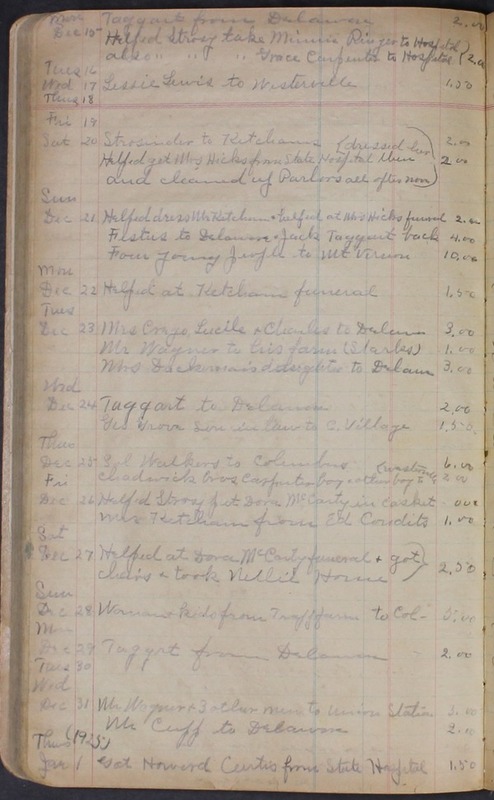 Mon Taggart from Delaware 2.00
Dec 15 Helped Strosy take Minnie Ringer to Hospital
also " " " Grace Carpenter to Hospital 2.00
Tues 16
Wed 17 Lessie Lewis to Westerville 1.50
Thus 18
Fri 19
Sat 20 Strosinder to Ketchams (dressed her 2.00
Helped get Mrs Hicks from State Hospital 2.00
and cleaned up Parlors all afternoon
Sun
Dec 21 Helped dress Mr Ketcham & helped at Mrs Hicks funeral 2.00
Festus to Delaware & Jack Taggart back 4.00
Four young people to Mt Vernon 10.00
Mon
Dec 22 Helped at Ketcham funeral 1.50
Tues
Dec 23 Mrs Crago, Lucile & Charles to Delaware 3.00
Mr Wagner to his farm (Starks) 1.00
Mrs daughter to Delaware 3.00
Wed
Dec 24 Taggart to Delaware 2.00
Grove Son in law to C. Village 1.50
Thus
Dec 25 Walkers to Columbus 6.00
Fri Chadwick Bros Carpenter boy & other boy 2.00
Dec 26 Helped Strosy put Dora McCarty in casket
Mrs Ketcham from Ed Condits 1.00
Sat
Dec 27 Helped at Dora McCarty funeral & got
chairs & took Nellie Home 2.50
Sun
Dec 28 Woman & Kids from farm to Col-
Mon
Dec 29 Taggart from Delaware 2.00
Tues 30
Wed
Dec 31 Mr Wagner & 3 other men to Union Station 3.00
Mr Cuff to Delaware
Thus (1925)
Jan 1 Get Howard Curtis from State Hospital 1.50